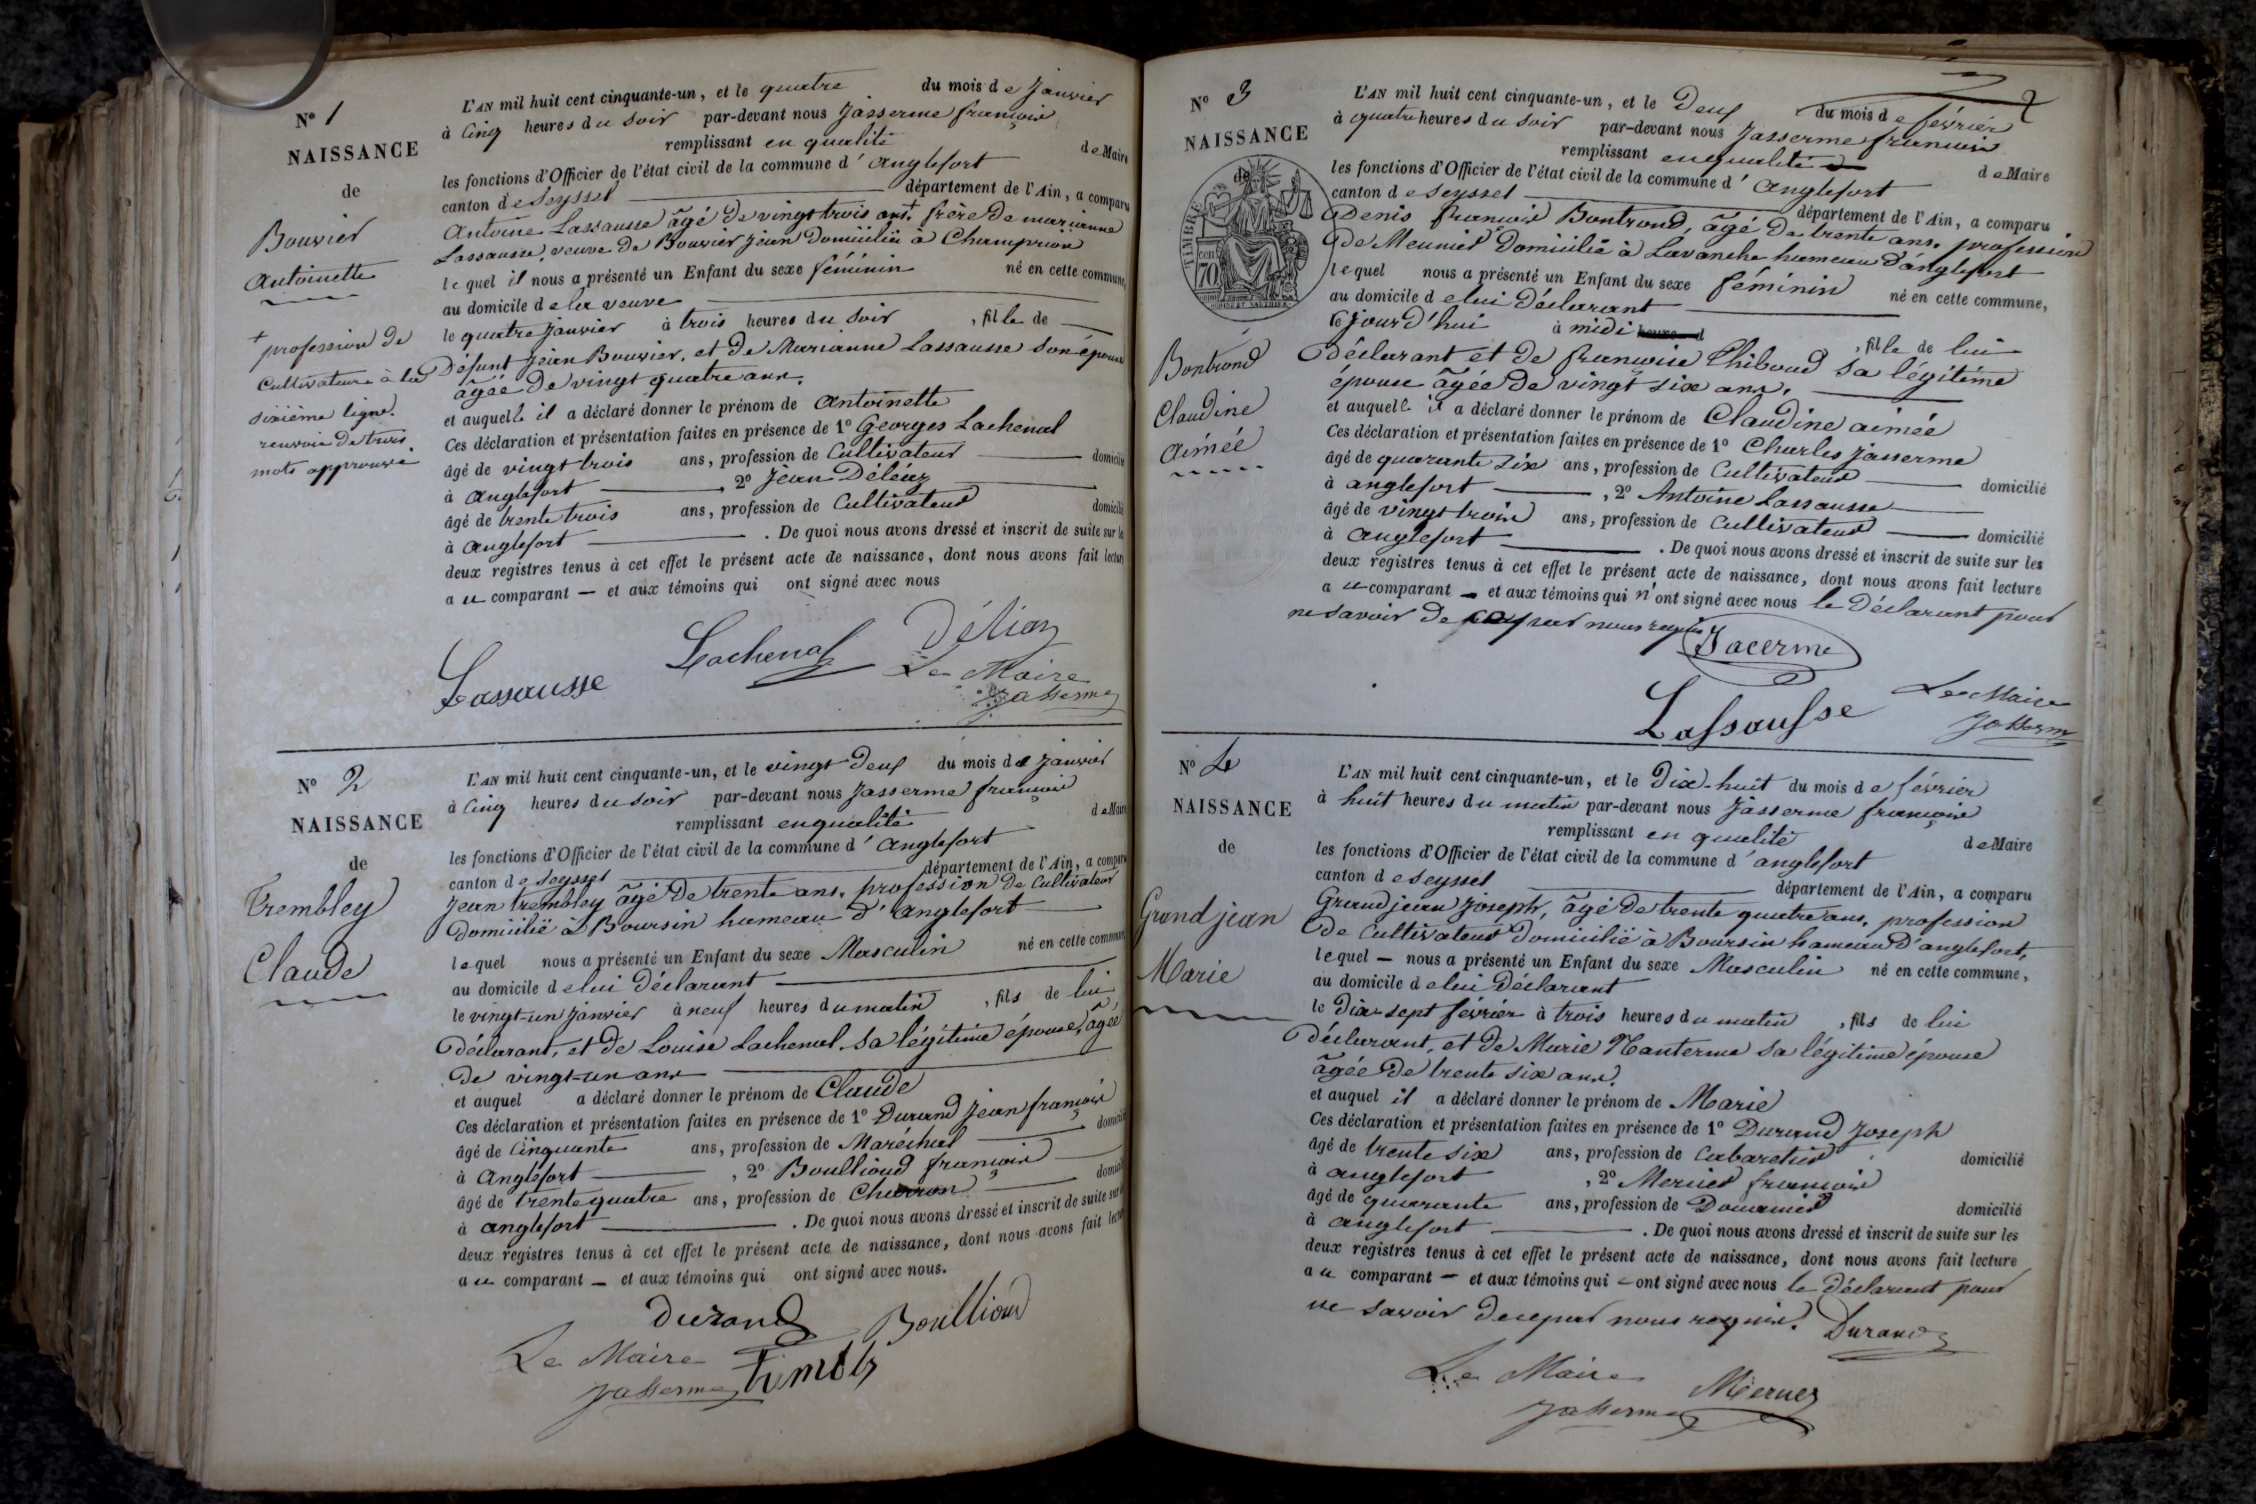 N° 1
NAISSANCE
de
Bouvier
Antoinette
+ profession de
Cultivateur à la
sixième ligne.
renvoie de trois
mots approuvé
L'AN mil huit cent cinquante-un, et le quatre du mois de Janvier
à Cinq heures du soir par-devant nous Jasserme françois
remplissant en qualité de Maire
les fonctions d'Officier de l'état civil de la commune d'anglefort
canton de Seyssel département de l'Ain, a comparu
Antoine Lassausse âgé de vingt trois ans + frère de marianne
Lassausse, veuve de Bouvier Jean domicilié à Champrion
lequel il nous a présenté un Enfant du sexe féminin né en cette commune,
au domicile de la veuve
le quatre Janvier à trois heures du soir, fille de
Défunt Jean Bouvier, et de Marianne Lassausse son épouse
âgée de vingt quatre ans.
et auquelle il a déclaré donner le prénom de Antoinette
Ces déclaration et présentation faites en présence de 1° Georges Lachenal
âgé de vingt trois ans, profession de Cultivateur domicilié
à Anglefort, 2° Jean Déléaz
âgé de trente trois ans, profession de Cultivateur domicilié
à Anglefort. De quoi nous avons dressé et inscrit de suite sur les
deux registres tenus à cet effet le présent acte de naissance, dont nous avons fait lecture
au comparant — et aux témoins qui ont signé avec nous
Lassausse Lachenal
Le Maire
Jasserme
N° 2
NAISSANCE
de
Trembley
Claude
L'AN mil huit cent cinquante-un, et le vingt deux du mois de Janvier
à Cinq heures du soir par-devant nous Jasserme françois
remplissant en qualité de Maire
les fonctions d'Officier de l'état civil de la commune d'anglefort
canton de Seyssel département de l'Ain, a comparu
Jean Trembley âgé de trente ans, profession de Cultivateur
domicilié à Boursin hameau d'Anglefort
lequel nous a présenté un Enfant du sexe Masculin né en cette commune
au domicile de lui déclarant
le vingt-un Janvier à neuf heures du matin, fils de lui
déclarant, et de Louise Lachenal, sa légitime épouse, âgée
de vingt-un ans
et auquel a déclaré donner le prénom de Claude
Ces déclaration et présentation faites en présence de 1° Durand Jean françois
âgé de Cinquante ans, profession de Maréchal domicilié
à Anglefort, 2° Boullioud françois
âgé de trente quatre ans, profession de Charron domicilié
à anglefort. De quoi nous avons dressé et inscrit de suite sur les
deux registres tenus à cet effet le présent acte de naissance, dont nous avons fait lecture
au comparant — et aux témoins qui ont signé avec nous.
Durand Boullioud
Le Maire
Jasserme
2
N° 3
NAISSANCE
de
TIMBRE
70
Bontrond
Claudine
aimée
L'AN mil huit cent cinquante-un, et le Deux du mois de février
à quatre heures du soir par-devant nous Jasserme françois
remplissant en qualité de Maire
les fonctions d'Officier de l'état civil de la commune d'Anglefort
canton de Seyssel département de l'Ain, a comparu
Denis françois Bontrond, âgé de trente ans, profession
de Meunier domicilié à Lavanche hameau d'anglefort
lequel nous a présenté un Enfant du sexe féminin né en cette commune,
au domicile de lui déclarant
le jour d'hui à midi, fille de lui
déclarant et de françoise Thiboud sa légitime
épouse âgée de vingt six ans,
et auquelle il a déclaré donner le prénom de Claudine aimée
Ces déclaration et présentation faites en présence de 1° Charles Jasserme
âgé de quarante six ans, profession de Cultivateur domicilié
à anglefort, 2° Antoine Lassausse
âgé de vingt trois ans, profession de Cultivateur domicilié
à Anglefort. De quoi nous avons dressé et inscrit de suite sur les
deux registres tenus à cet effet le présent acte de naissance, dont nous avons fait lecture
au comparant — et aux témoins qui n'ont signé avec nous le déclarant pour
ne savoir de par nous requis
Jacerme
Lassausse
Le Maire
Jasserme
N° 4
NAISSANCE
de
Grandjean
Marie
L'AN mil huit cent cinquante-un, et le Dix-huit du mois de février
à huit heures du matin par-devant nous Jasserme françois
remplissant en qualité de Maire
les fonctions d'Officier de l'état civil de la commune d'anglefort
canton de Seyssel département de l'Ain, a comparu
Grandjean Joseph, âgé de trente quatre ans, profession
de Cultivateur domicilié à Boursin hameau d'anglefort,
lequel — nous a présenté un Enfant du sexe Masculin né en cette commune,
au domicile de lui déclarant
le Dix-sept février à trois heures du matin, fils de lui
déclarant, et de Marie Nanterme sa légitime épouse
âgée de trente six ans.
et auquel il a déclaré donner le prénom de Marie
Ces déclaration et présentation faites en présence de 1° Durand Joseph
âgé de trente six ans, profession de Cabaretier domicilié
à anglefort, 2° Mernier françois
âgé de quarante ans, profession de Douanier domicilié
à anglefort. De quoi nous avons dressé et inscrit de suite sur les
deux registres tenus à cet effet le présent acte de naissance, dont nous avons fait lecture
au comparant — et aux témoins qui ont signé avec nous le déclarant pour
ne savoir de ce par nous requis. Durand
Le Maire
Jasserme